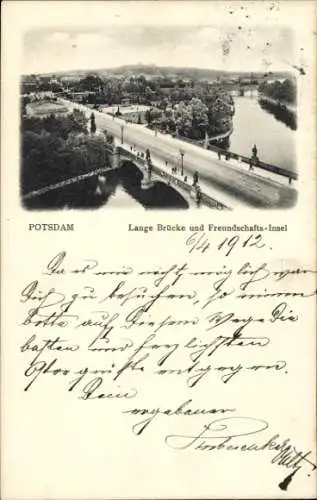 POTSDAM Lange Brücke und Freundschafts-Insel
6/4 1912.
Da es mir nicht möglich war
Dich zu besuchen, so nimm
bitte auf diesem Wege die
besten und herzlichsten
Ostergrüße entgegen.
Dein
ergebener